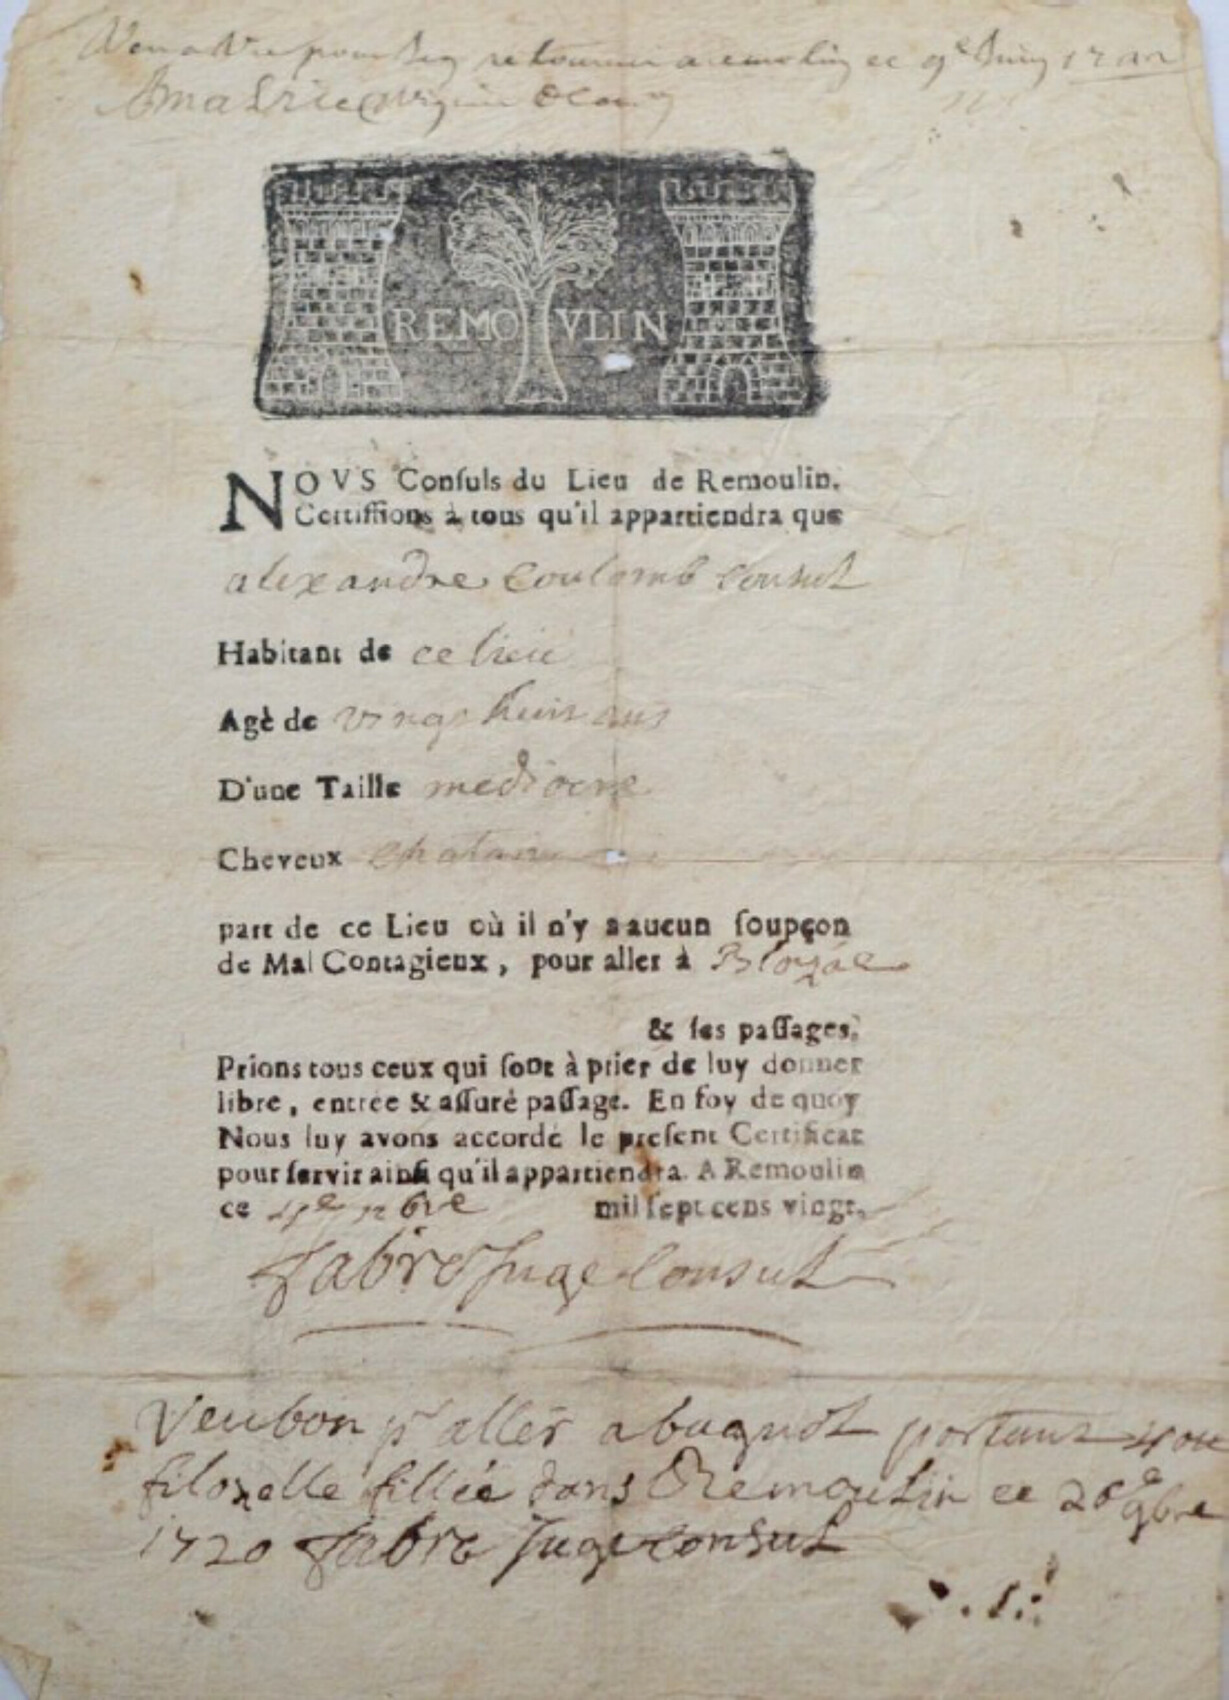 retourner a remolin ce 9e Juin 17
REMOVLIN
NOVS Conſuls du Lieu de Remoulin.
Certiffions à tous qu'il appartiendra que
alexandre Coulomb Consul
Habitant de ce lieu
Agè de vingt huit ans
D'une Taille mediocre
Cheveux chatain
part de ce Lieu où il n'y a aucun ſoupçon
de Mal Contagieux, pour aller à
& ſes paſſages.
Prions tous ceux qui ſont à prier de luy donner
libre, entrée & aſſuré paſſage. En foy de quoy
Nous luy avons accordé le preſent Certificat
pour ſervir ainſi qu'il appartiendra. A Remoulin
ce mil ſept cens vingt.
fabre Juge Consul
Veu bon pr aller a bagnol portant
filozelle fillée dans Remoulin ce 26e 9bre
1720 fabre Juge consul